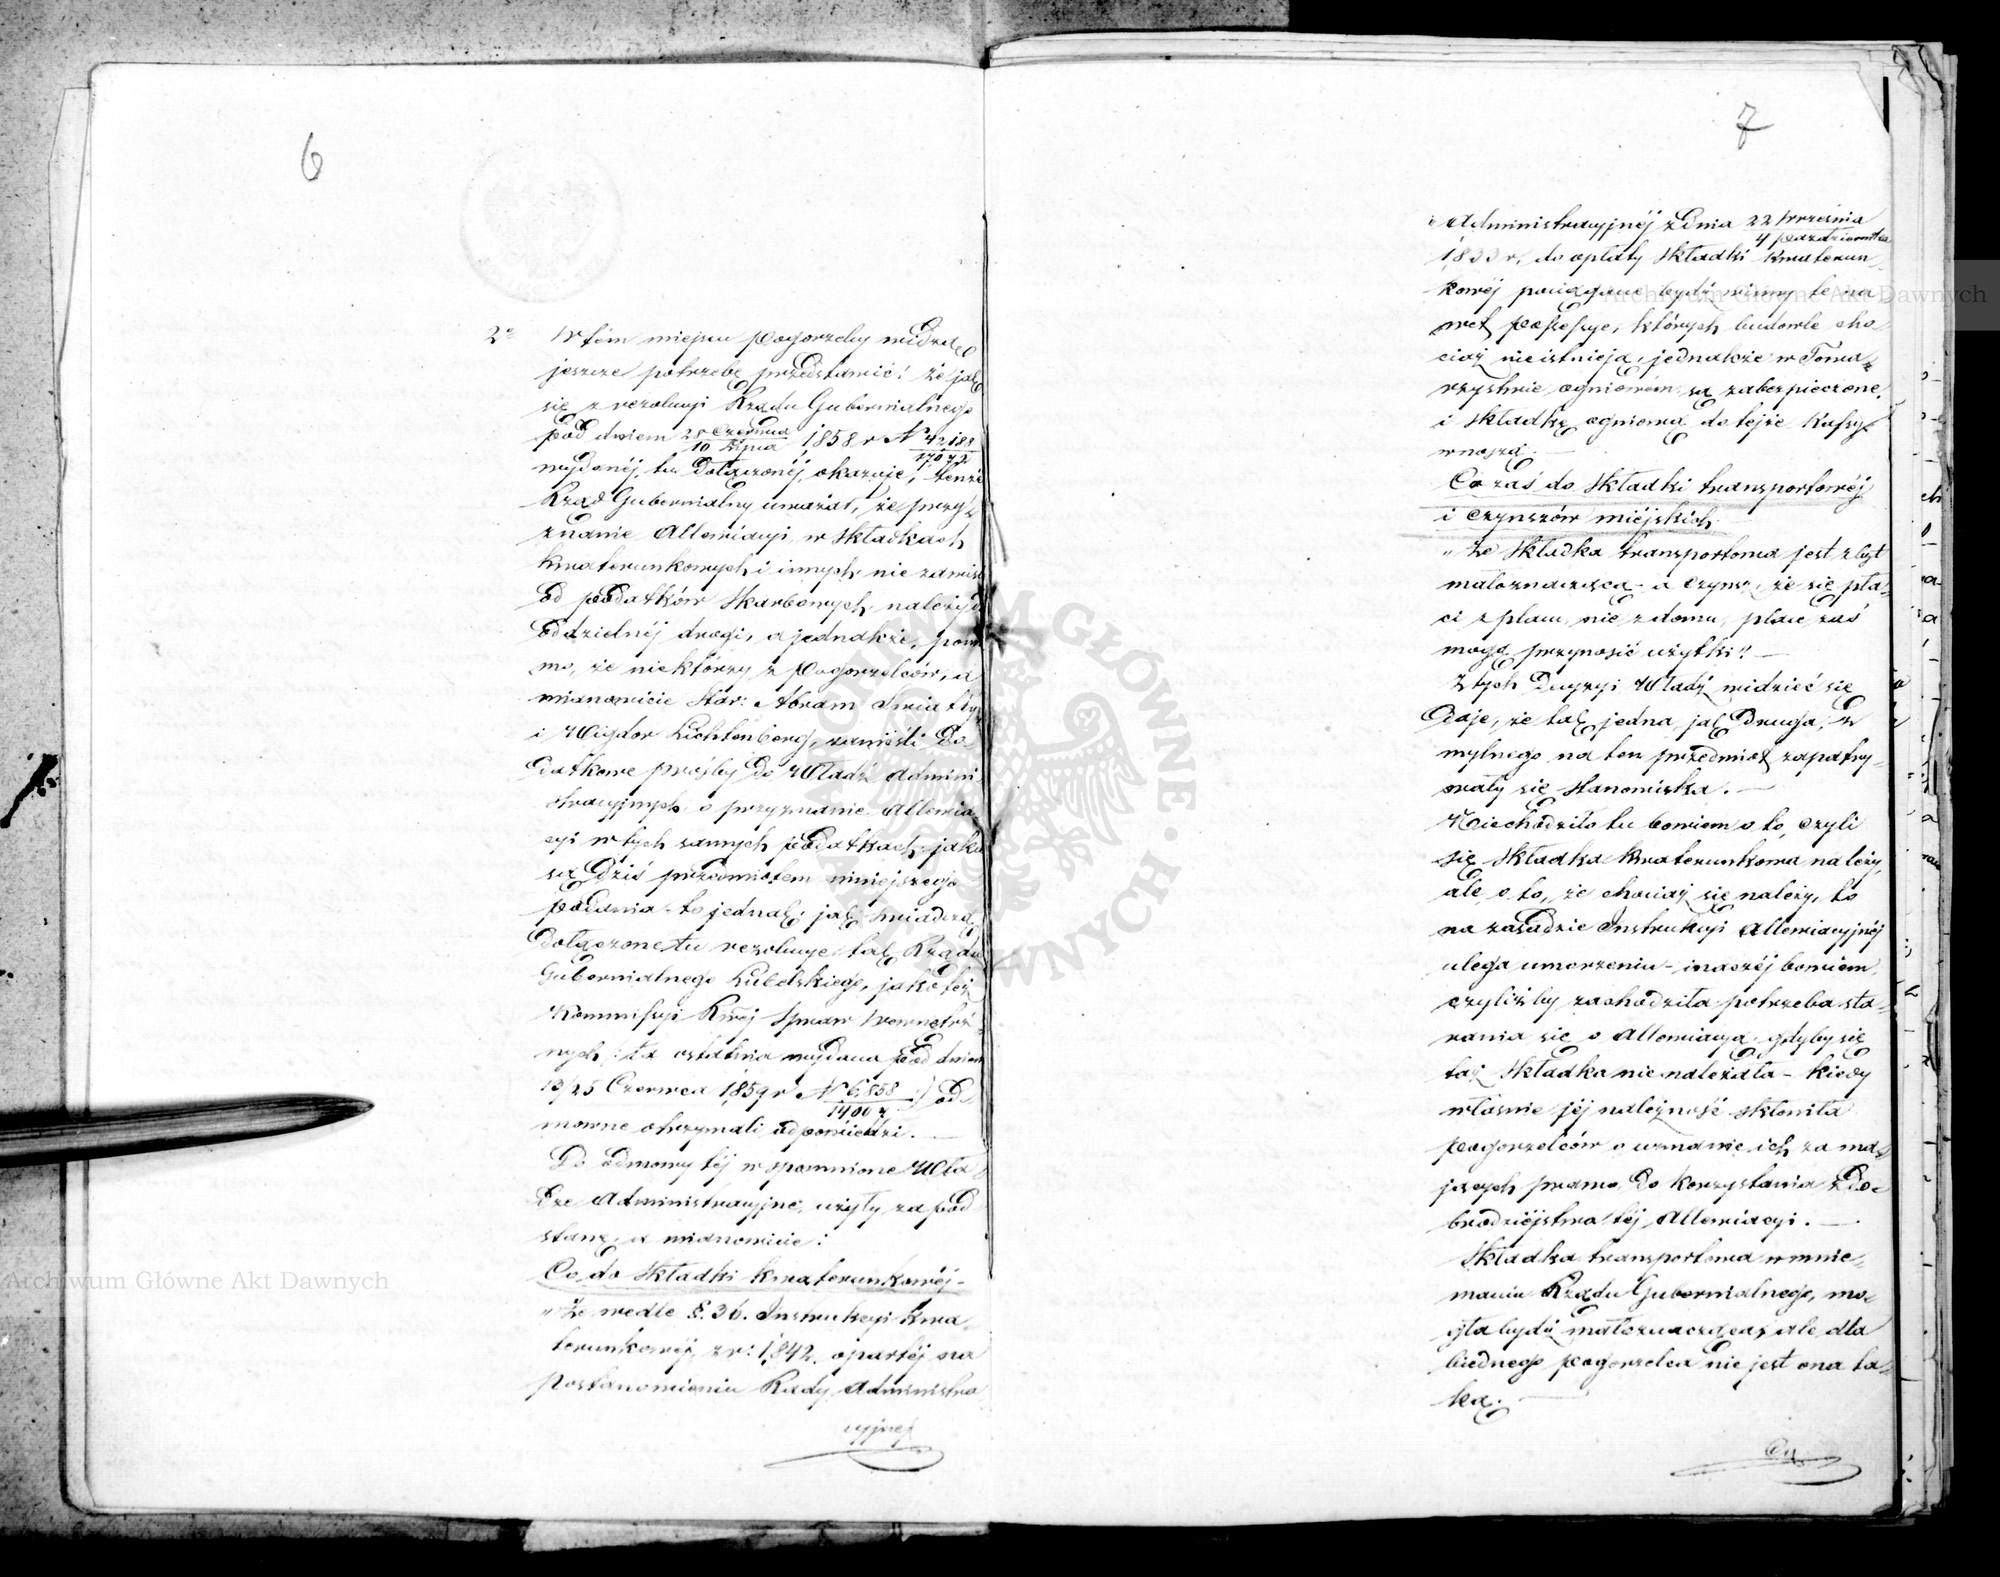 6
2o W tém miejscu Pogorzelcy widzą
jeszcze potrzebę przedstawić: że jak
się z rezolucyi Rządu Gubernialnego
pod dniem 28 Czerwca / 10 Lipca 1858 r N 42188 / 17072
wydanéj, tu dołączonéj, okazuje, tenże
Rząd Gubernialny uważał, że przy-
znanie Allewiacyi w składkach
kwaterunkowych i innych niezawisł
od podatków Skarbowych, należy do
oddzielnéj drogi, a jednakże, pomi
mo, że niektórzy z Pogorzelców, a
mianowicie Star: Abram
i Wigdor Lichtenberg, zanieśli do
datkowe prośby do Władz Admini
stracyjnych o przyznanie Allewia
cyi w tych samych podatkach jakie
są dziś przedmiotem niniejszego
podania - to jednak, jak świadczą
dołączone tu rezolucye tak Rządu
Gubernialnego Lubelskiego, jako téż
Kommissyi Rwéj Spraw Wewnętrz-
nych /: ta ostatnia wydana pod dniem
13/25 Czerwca 1859 r N 6,858 / 1400 :/ od-
mowne otrzymali odpowiedzi. —
Do odmowy téj wspomnione Wła
dze Administracyjne, użyły za pod
stawę, a mianowicie:
Co do Składki kwaterunkowéj -
„ Że wedle §. 36. Instrukcyi Kwa-
terunkowéj z r: 1842. opartéj na
Postanowieniu Rady Administra
cyjnéj
7
Administracyjnéj z dnia 22 Września / 4 Października
1833 r. do opłaty Składki Kwaterun-
kowéj pociągane bydź winny te na
wet possessye, których budowle cho-
ciaż nieistnieją, jednakże w Towa-
rzystwie ogniowem są zabezpieczone,
i składkę ogniową do tejże Kassy
wnoszą. —
Co zaś do Składki transportowéj
i Czynszów miéjskich.
„ Że Składka transportowa jest zbyt
małoznaczącą - a Czynsz, że się pła-
ci z placu, nie z domu, place zaś
mogą przynosić użytki". —
Z tych Decyzyi Władz widzieć się
daje, że tak jedna jak druga, z
mylnego na ten przedmiot zapatry-
wały się Stanowiska. —
Niechodziło tu bowiem o to, czyli
się Składka Kwaterunkowa należy,
ale o to, że chociaż się należy, to
na zasadzie Instrukcyi Allewiacyjnéj
ulega umorzeniu - inaczéj bowiem,
czyliżby zachodziła potrzeba sta-
rania się o Allewiacyą - gdyby się
taż Składka nie należała - kiedy
właśnie jéj należność skłoniła
pogorzelców o uznanie ich za ma-
jących prawo do korzystania z do-
brodziéjstwa téj Allewiacyi. —
Składka transportowa w mnie-
maniu Rządu Gubernialnego, mo-
gła bydź małoznaczącą, ale dla
biednego pogorzelca nie jest ona ta-
ką. —
Archiwum Główne Akt Dawnych
Archiwum Główne Akt Dawnych
ARCHIWUM GŁÓWNE AKT DAWNYCH